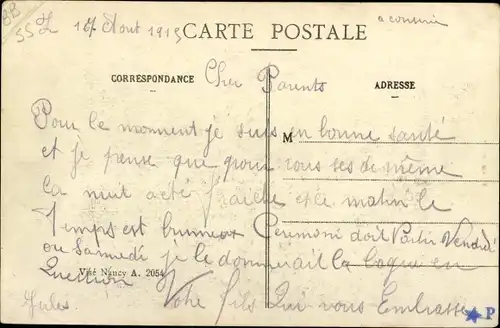 BB
55 Z
17 Aout 1915
CARTE POSTALE
a conserver
CORRESPONDANCE
Cher Parents
ADRESSE
Pour le moment je suis en bonne santé
M
et je pense que pour vous ses de même
La nuit a été fraiche et le matin le
Temps est brumeux doit Partir Vendredi
ou Samedi je le donnerait la bague en
Question
Visé Nancy A. 2054
Jules
Votre fils Qui vous Embrasse
P